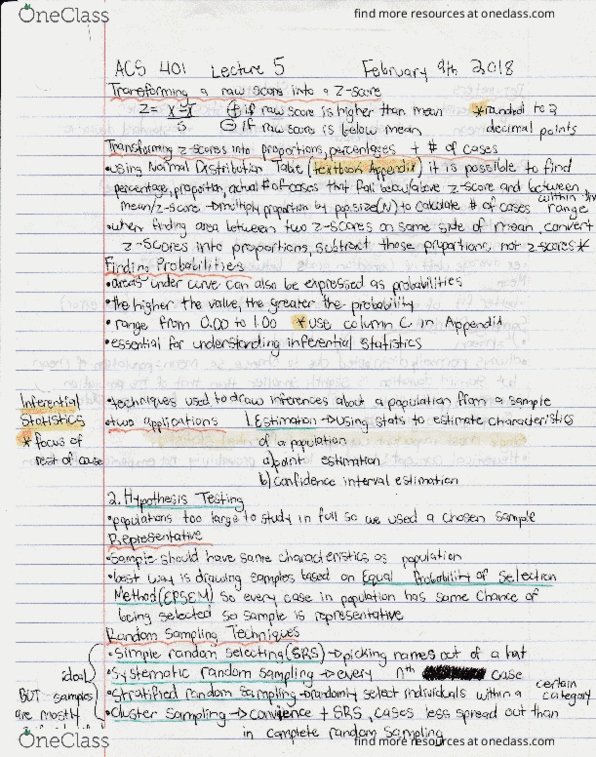 OneClass
find more resources at oneclass.com
ACS 401 Lecture 5 February 9th 2018
Transforming a raw score into a Z-score
Z = X - X̄ (+) if raw score is higher than mean *rounded to 2
S (-) if raw score is below mean decimal points
Transforming z-scores into proportions, percentages + # of cases
•using Normal Distribution Table (textbook Appendix) it is possible to find
percentage, proportion, actual # of cases that fall below/above z-score and between
mean/z-score → multiply proportion by pop. size (N) to calculate # of cases within
range
•when finding area between two z-scores on same side of mean, convert
z-scores into proportions, subtract those proportions, not z-scores*
Finding Probabilities
•areas under curve can also be expressed as probabilities
•the higher the value, the greater the probability
•range from 0.00 to 1.00 *use column C in Appendix
•essential for understanding inferential statistics
Inferential
Statistics
* focus of
rest of case
•techniques used to draw inferences about a population from a sample
•two applications 1.Estimation → using stats to estimate characteristics
of a population
a)point estimation
b)confidence interval estimation
2. Hypothesis Testing
•populations too large to study in full so we used a chosen sample
Representative
•sample should have same characteristics as population
•best way is drawing samples based on Equal Probability of Selection
Method (EPSEM) so every case in population has same chance of
being selected so sample is representative
Random Sampling Techniques
•Simple random selecting (SRS) → picking names out of a hat
ideal
•Systematic random sampling → every nth case
•Stratified random sampling → randomly select individuals within a certain category
BUT samples
are mostly
•Cluster Sampling → convience + SRS, cases less spread out than
in complete random sampling
OneClass
find more resources at oneclass.com